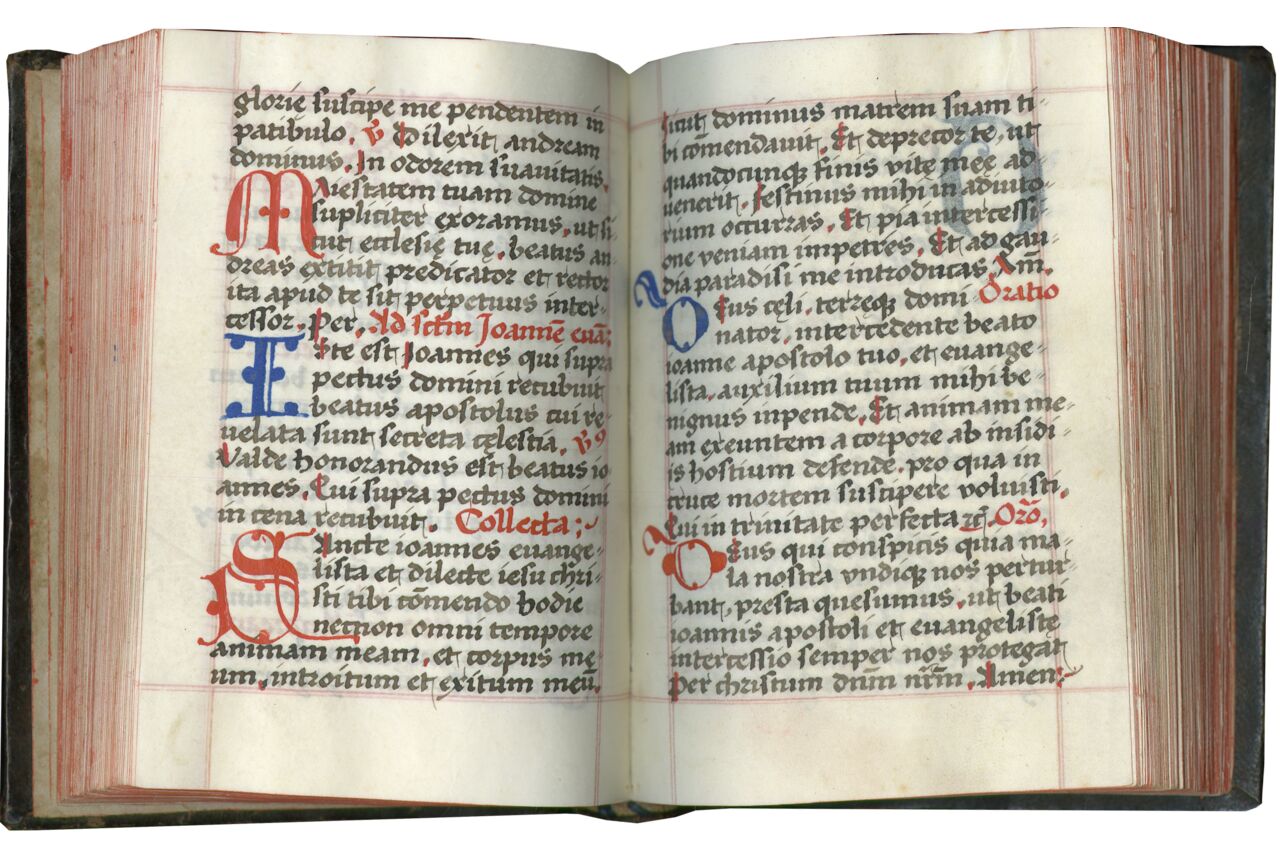 glorię suscipe me pendentem in
patibulo. ℣ Dilexit andream
dominus. In odorem suauitatis.
Maiestatem tuam domine
supliciter exoramus, ut si-
cut ecclesię tuę, beatus an
dreas extitit predicator et rector
ita apud te sit perpetuus inter-
cessor. Per. Ad sctm Joannē euā:
Iste est Joannes qui supra
pectus domini recubuit
beatus apostolus cui re-
uelata sunt secreta cęlestia.
Valde honorandus est beatus io
annes. Qui supra pectus domini
in cena recubuit. Collecta:
Sancte ioannes euange-
lista et dilecte iesu chri-
sti tibi cōmendo hodie
necnon omni tempore
animam meam, et corpus me-
um, introitum et exitum meū.
sicut dominus matrem suam ti-
bi cōmendauit. Et deprecor te, ut
quandocunqꝫ finis vitę meę ad-
uenerit. Festinus mihi in adiuto-
rium occurras. Et pia intercessi-
one veniam impetres. Et ad gau-
dia paradisi me introducas Am̄.
Deus cęli, terreqꝫ domi Oratio
nator, intercedente beato
ioanne apostolo tuo, et euange-
lista, auxilium tuum mihi be-
nignus inpende. Et animam me-
am exeuntem a corpore ab insidi-
is hostium defende. pro qua in
cruce mortem suscipere voluisti.
Qui in trinitate perfecta ⁊c̄. Orō,
Deus qui conspicis quia ma-
la nostra vndiqꝫ nos pertur-
bant, presta quesumus, ut beati
ioannis apostoli et euangelistę
intercessio semper nos protegat
Per christum dn̄m nr̄m. Amen: